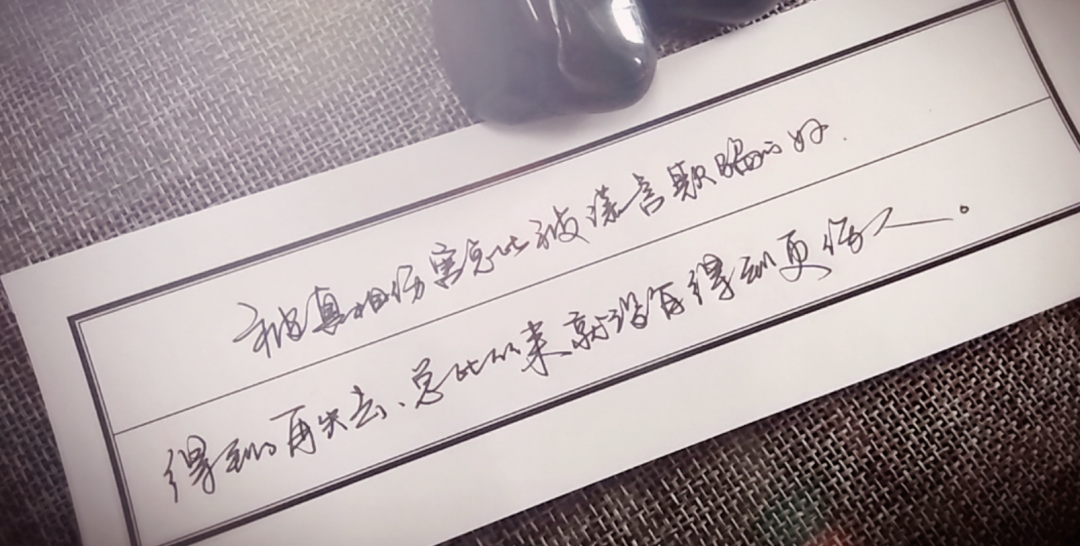 被真相伤害总比被谎言欺骗的好.
得到了再失去、总比从来就没有得到更伤人。